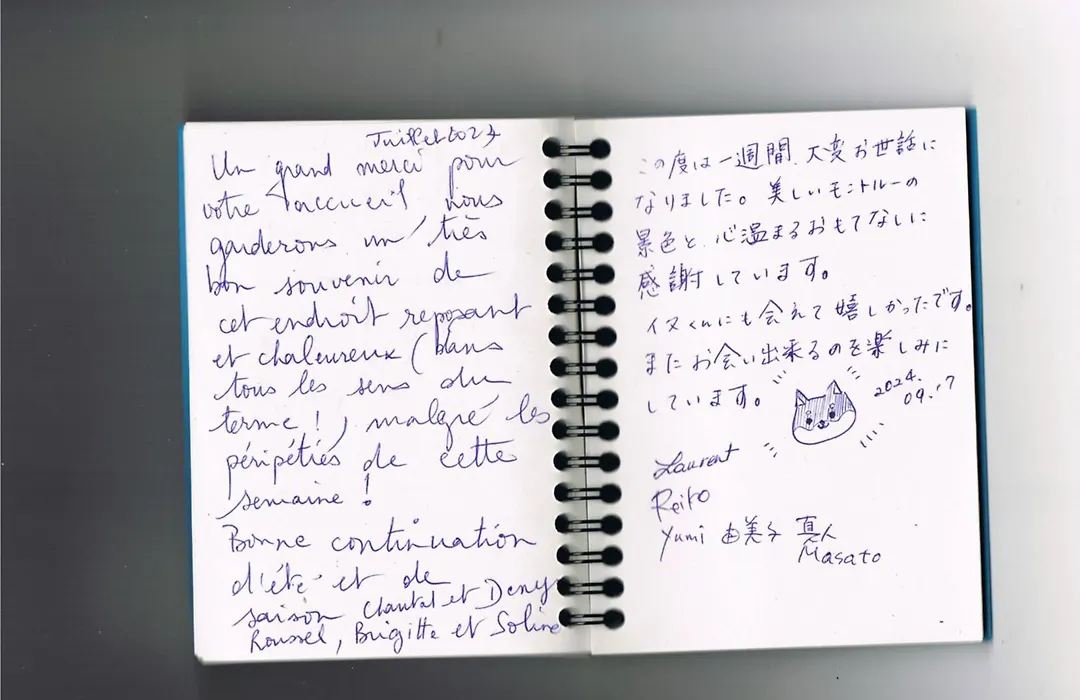 Juillet 2023
Un grand merci pour
votre accueil nous
garderons un très
bon souvenir de
cet endroit reposant
et chaleureux (dans
tous les sens du
terme !) malgré les
péripéties de cette
semaine !
Bonne continuation
d'été et de
saison Chantal et Denys
Roussel, Brigitte et Soline
この度は一週間、大変お世話に
なりました。美しいモントルーの
景色と、心温まるおもてなしに
感謝しています。
イヌくんにも会えて嬉しかったです。
またお会い出来るのを楽しみに
しています。
2024.
09.17
Laurent
Reiko
Yumi 由美子 真人
Masato